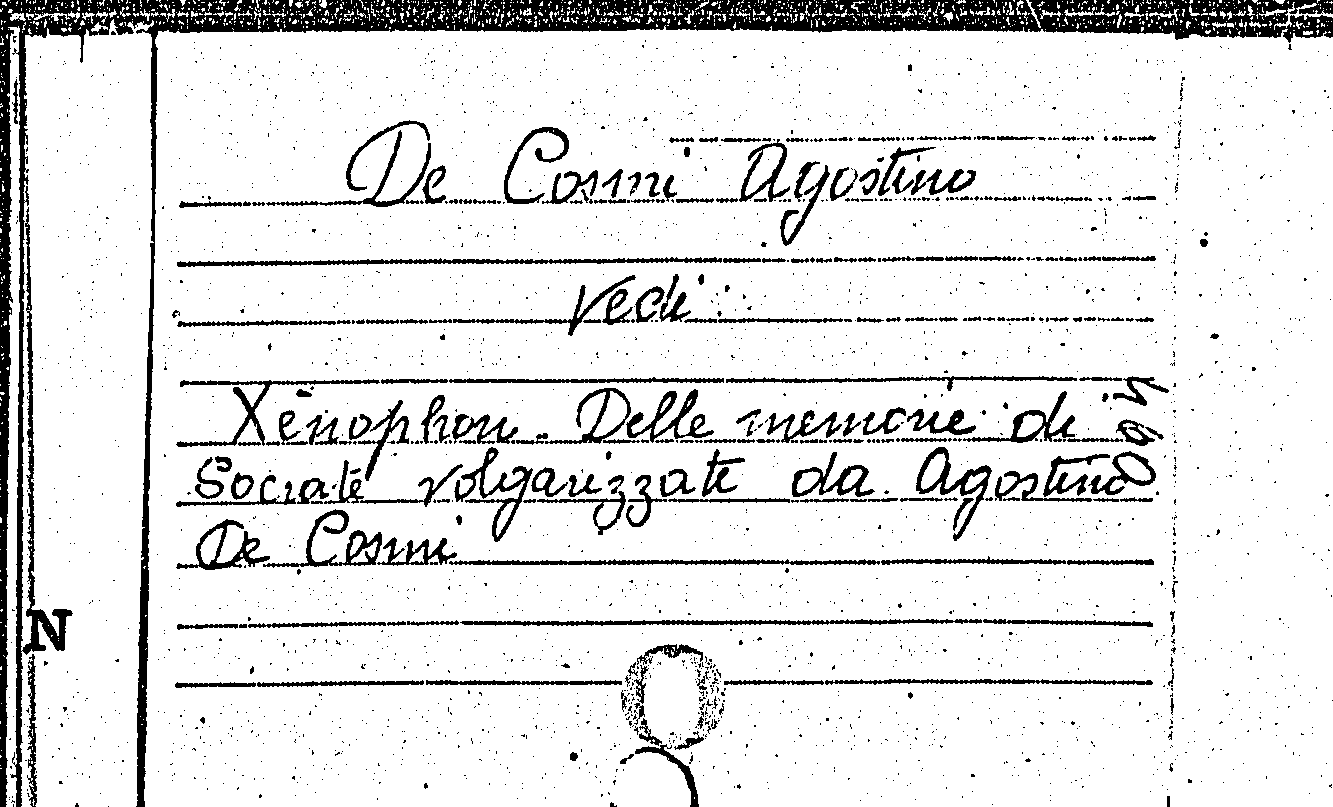 De Cosmi Agostino
Vedi:
Xenophon. Delle memorie di
Socrate volgarizzate da Agostino
De Cosmi
N